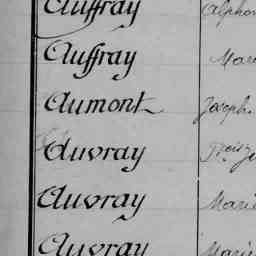 Auffray Alphon
Auffray Mar
Aumont Joseph
Auvray Frois J
Auvray Marie
Auvray Marie